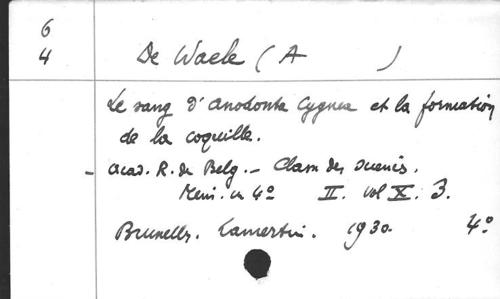 6
4
De Waele (A )
Le sang d'Anodonta Cygnea et la formation
de la coquille.
- Acad. R. de Belg. – Classe des Scienc.
Mem. in 4º II. vol X. 3.
Bruxelles. Lamertin. 1930. 4º